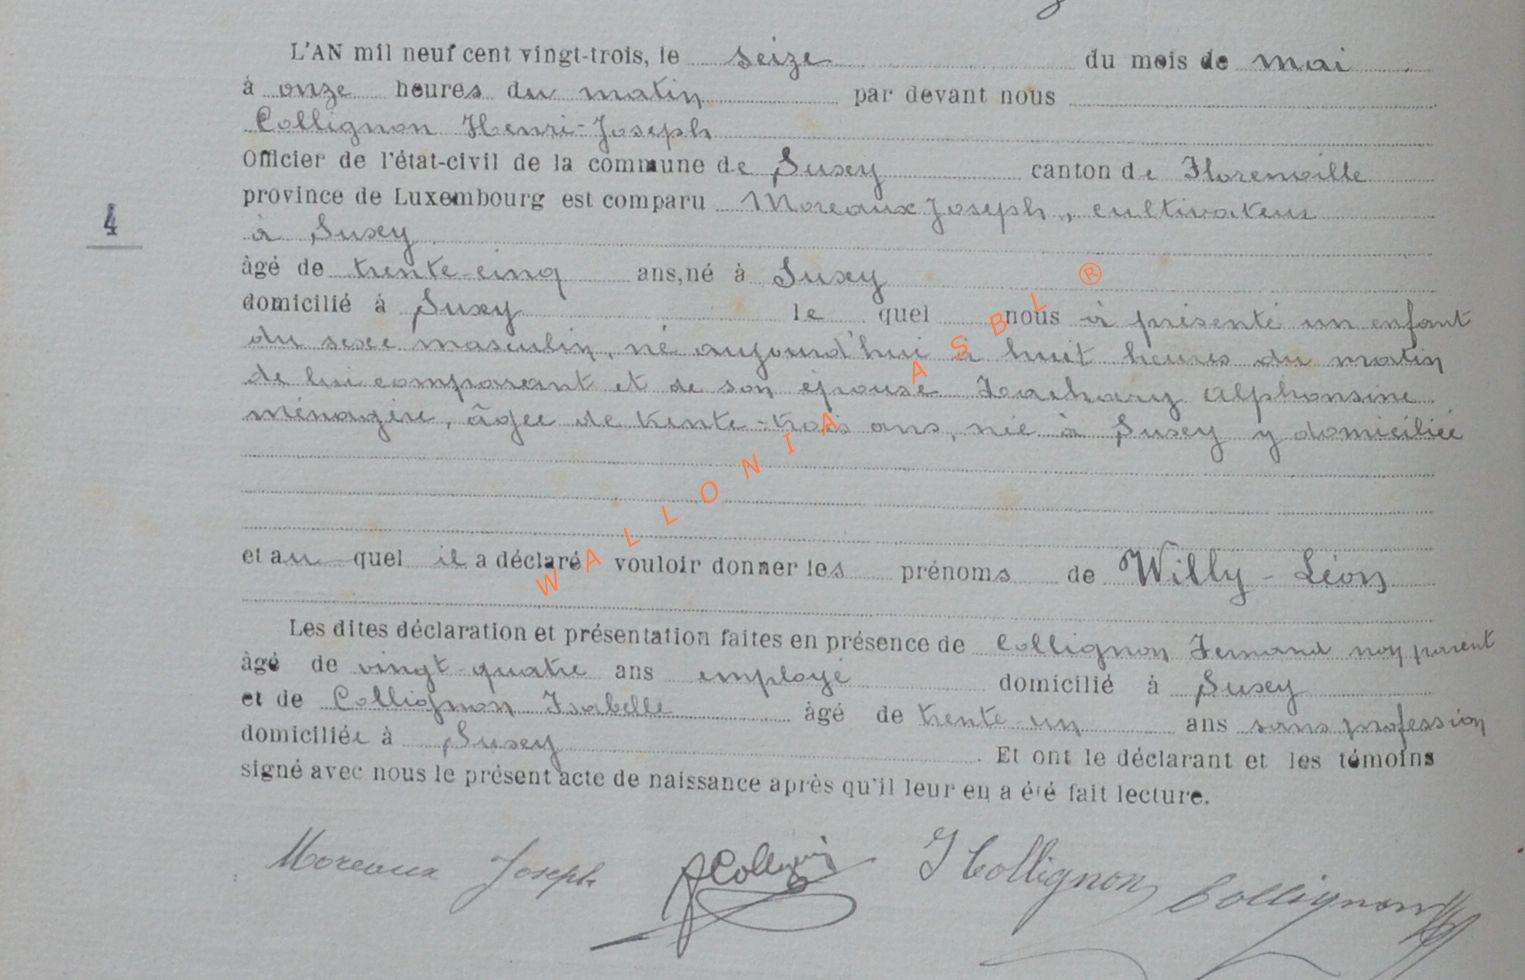 L'AN mil neuf cent vingt-trois, le seize du mois de mai
à onze heures du matin par devant nous
Collignon Henri-Joseph
Officier de l'état-civil de la commune de Suxy canton de Florenville
province de Luxembourg est comparu Moreaux Joseph, cultivateur
4
à Suxy
âgé de trente-cinq ans, né à Suxy
domicilié à Suxy le quel nous à présenté un enfant
du sexe masculin, né aujourd'hui à huit heures du matin
de lui comparant et de son épouse Zachary Alphonsine
ménagère, âgée de trente-trois ans, née à Suxy y domiciliée
et au quel il a déclaré vouloir donner les prénoms de Willy-Léon
Les dites déclaration et présentation faites en présence de Collignon Fernand non parent
âgé de vingt-quatre ans employé domicilié à Suxy
et de Collignon Isabelle âgé de trente-un ans sans profession
domiciliée à Suxy. Et ont le déclarant et les témoins
signé avec nous le présent acte de naissance après qu'il leur en a été fait lecture.
Moreaux Joseph Collignon I Collignon Collignon
WALLONIA ASBL ®